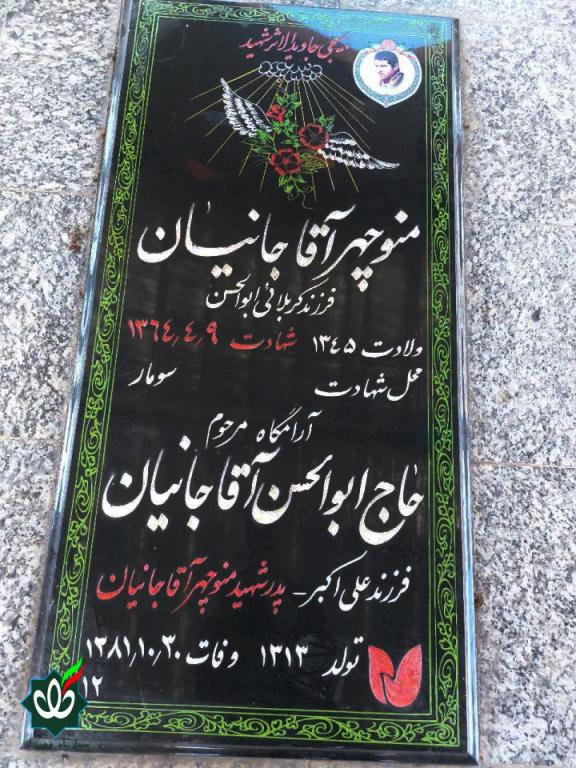 بسیجی جاویدالاثر شهید
منوچهر آقاجانیان
فرزند کربلائی ابوالحسن
ولادت ۱۳۴۵ شهادت ۱۳۶۴٫۴٫۹
محل شهادت سومار
آرامگاه مرحوم
حاج ابوالحسن آقاجانیان
فرزند علی اکبر - پدر شهید منوچهر آقاجانیان
تولد ۱۳۱۳ وفات ۱۳۸۱٫۱۰٫۳۰
۱۲